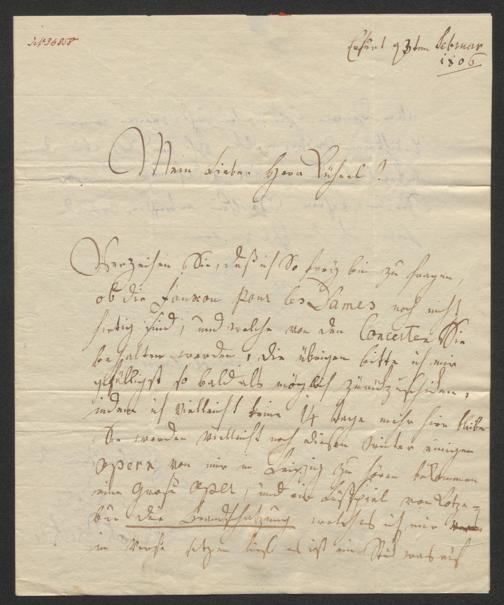 Erfurt d 3ten Februar
1806
Mein Lieber Herr Kühnel!
Verzeihen Sie, daß ich so freÿ bin zu fragen,
ob die pour les Dames noch nicht
fertig sind, und welche von den Concerten Sie
behalten werden, die übrigen bitte ich mir
gefälligst so bald als möglich zurückzusenden,
indem ich vielleicht keine 14 tage mehr hier bleibe
Sie werden vielleicht noch diesen Winter einige
opern von mir in Leipzig zu hören bekommen
eine große oper, und ein Lustspiel von Kotze=
bue die Brandschatzung welches ich mir
in Verse setzen ließ es ist ein Stück was auf